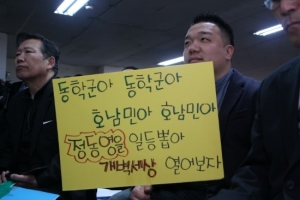 동학군아 동학군아
호남민아 호남민아
정동영을 일등뽑아
개벽세상 열어보자